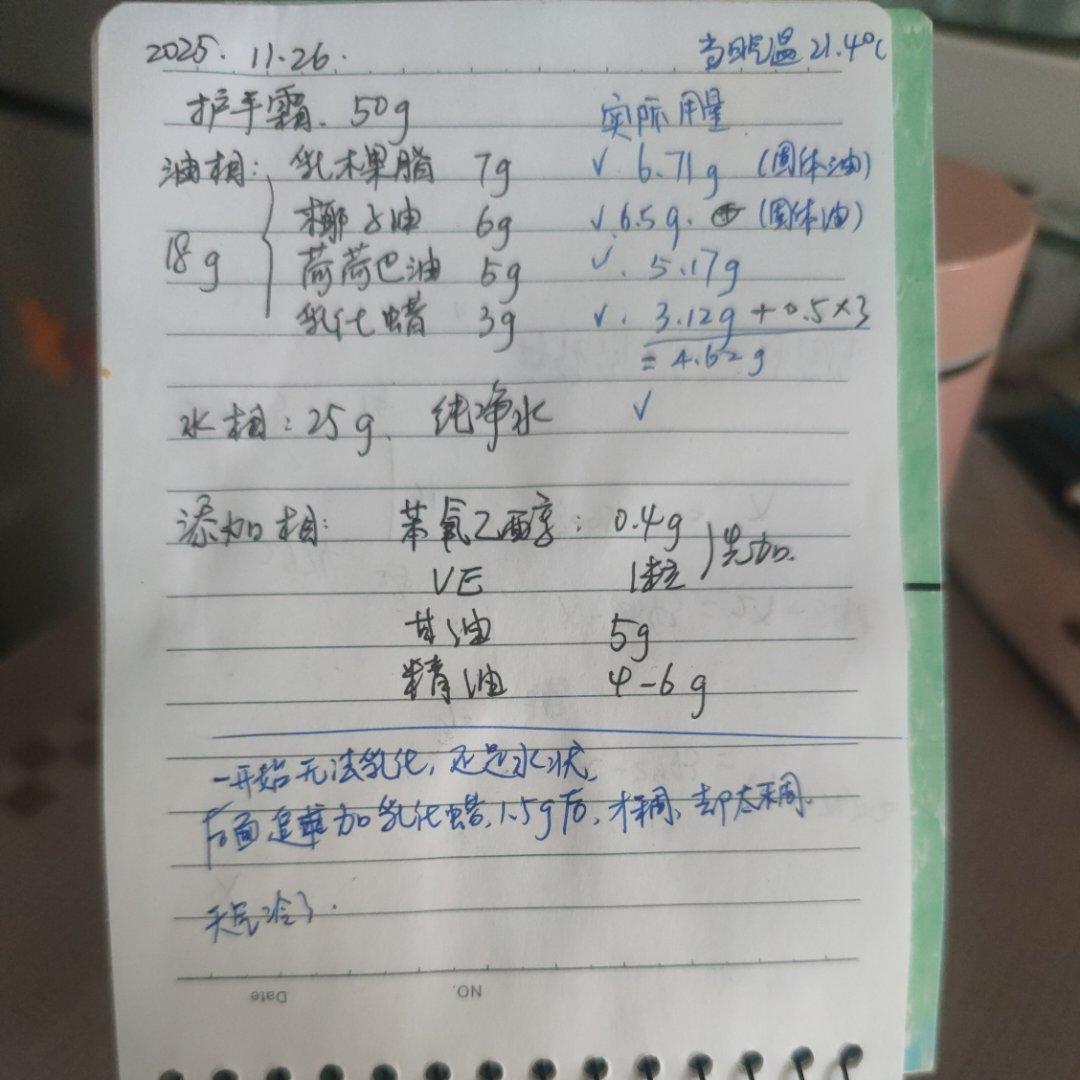 2025. 11.26. 当日气温 21.4°C
护手霜. 50g 实际用量
油相: 乳木果脂 7g ✓. 6.71g (固体油)
椰子油 6g ✓.6.5g. (固体油)
18g 荷荷巴油 5g ✓. 5.17g
乳化蜡 3g ✓. 3.12g+0.5×3
=4.62g
水相: 25g. 纯净水 ✓
添加相: 苯氧乙醇: 0.4g
VE 1粒 )先加.
甘油 5g
精油 4-6g
一开始无法乳化, 还是水状,
后面追加乳化蜡, 1.5g后, 才稠, 却太稠.
天气冷了.
NO.
Date